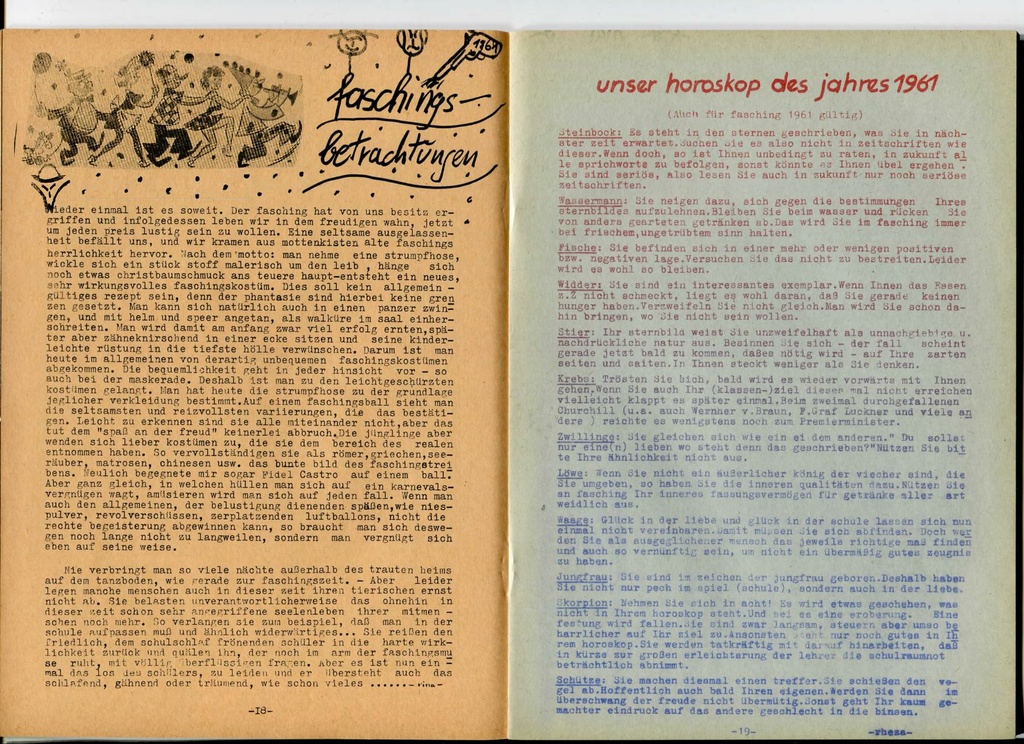 1961
faschings-
betrachtungen
Wieder einmal ist es soweit. Der fasching hat von uns besitz er-
griffen und infolgedessen leben wir in dem freudigen wahn, jetzt
um jeden preis lustig sein zu wollen. Eine seltsame ausgelassen-
heit befällt uns, und wir kramen aus mottenkisten alte faschings
herrlichkeit hervor. Nach dem motto: man nehme eine strumpfhose,
wickle sich ein stück stoff malerisch um den leib , hänge sich
noch etwas christbaumschmuck ans teuere haupt-entsteht ein neues,
sehr wirkungsvolles faschingskostüm. Dies soll kein allgemein -
gültiges rezept sein, denn der phantasie sind hierbei keine gren
zen gesetzt. Man kann sich natürlich auch in einen panzer zwin-
gen, und mit helm und speer angetan, als walküre im saal einher-
schreiten. Man wird damit am anfang zwar viel erfolg ernten,spä-
ter aber zähneknirschend in einer ecke sitzen und seine kinder-
leichte rüstung in die tiefste hölle verwünschen. Darum ist man
heute im allgemeinen von derartig unbequemen faschingskostümen
abgekommen. Die bequemlichkeit geht in jeder hinsicht vor - so
auch bei der maskerade. Deshalb ist man zu den leichtgeschürzten
kostümen gelangt. Man hat heute die strumpfhose zu der grundlage
jeglicher verkleidung bestimmt.Auf einem faschingsball sieht man
die seltsamsten und reizvollsten variierungen, die das bestäti-
gen. Leicht zu erkennen sind sie alle miteinander nicht,aber das
tut dem "spaß an der freud" keinerlei abbruch.Die jünglinge aber
wenden sich lieber kostümen zu, die sie dem bereich des realen
entnommen haben. So vervollständigen sie als römer,griechen,see-
räuber, matrosen, chinesen usw. das bunte bild des faschingstrei
bens. Neulich begegnete mir sogar Fidel Castro auf einem ball.
Aber ganz gleich, in welchen hüllen man sich auf ein karnevals-
vergnügen wagt, amüsieren wird man sich auf jeden fall. Wenn man
auch den allgemeinen, der belustigung dienenden späßen,wie nies-
pulver, revolverschüssen, zerplatzenden luftballons, nicht die
rechte begeisterung abgewinnen kann, so braucht man sich deswe-
gen noch lange nicht zu langweilen, sondern man vergnügt sich
eben auf seine weise.
Nie verbringt man so viele nächte außerhalb des trauten heims
auf dem tanzboden, wie gerade zur faschingszeit. - Aber leider
legen manche menschen auch in dieser zeit ihren tierischen ernst
nicht ab. Sie belasten unverantwortlicherweise das ohnehin in
dieser zeit schon sehr angegriffene seelenleben ihrer mitmen -
schen noch mehr. So verlangen sie zum beispiel, daß man in der
schule aufpassen muß und ähnlich widerwärtiges... Sie reißen den
friedlich, dem schulschlaf frönenden schüler in die harte wirk-
lichkeit zurück und quälen ihn, der noch im arm der faschingsmu
se ruht, mit völlig überflüssigen fragen. Aber es ist nun ein -
mal das los des schülers, zu leiden und er übersteht auch das
schlafend, gähnend oder träumend, wie schon vieles .......-rina-
-18-
unser horoskop des jahres 1961
(Auch für fasching 1961 gültig)
Steinbock: Es steht in den sternen geschrieben, was Sie in näch-
ster zeit erwartet.Suchen Sie es also nicht in zeitschriften wie
dieser.Wenn doch, so ist Ihnen unbedingt zu raten, in zukunft al
le sprichworte zu befolgen, sonst könnte es Ihnen übel ergehen .
Sie sind seriös, also lesen Sie auch in zukunft nur noch seriöse
zeitschriften.
Wassermann: Sie neigen dazu, sich gegen die bestimmungen Ihres
sternbildes aufzulehnen.Bleiben Sie beim wasser und rücken Sie
von anders gearteten getränken ab.Das wird Sie im fasching immer
bei frischem,ungetrübtem sinn halten.
Fische: Sie befinden sich in einer mehr oder wenigen positiven
bzw. negativen lage.Versuchen Sie das nicht zu bestreiten.Leider
wird es wohl so bleiben.
Widder: Sie sind ein interessantes exemplar.Wenn Ihnen das Essen
z.Z nicht schmeckt, liegt es wohl daran, daß Sie gerade keinen
hunger haben.Verzweifeln Sie nicht gleich.Man wird Sie schon da-
hin bringen, wo Sie nicht sein wollen.
Stier: Ihr sternbild weist Sie unzweifelhaft als unnachgiebige u.
nachdrückliche natur aus. Besinnen Sie sich - der fall scheint
gerade jetzt bald zu kommen, daßes nötig wird - auf Ihre zarten
seiten und saiten.In Ihnen steckt weniger als Sie denken.
Krebs: Trösten Sie sich, bald wird es wieder vorwärts mit Ihnen
gehen.Wenn Sie auch Ihr (klassen-)ziel dieses mal nicht erreichen
vielleicht klappt es später einmal.Beim zweimal durchgefallenen
Churchill (u.a. auch Wernher v.Braun, F.Graf Luckner und viele an
dere ) reichte es wenigstens noch zum Premierminister.
Zwillinge: Sie gleichen sich wie ein ei dem anderen." Du sollst
nur eine(n) lieben wo steht denn das geschrieben?"Nützen Sie bit
te Ihre Ähnlichkeit nicht aus.
Löwe: Wenn Sie nicht ein äußerlicher könig der viecher sind, die
Sie umgeben, so haben Sie die inneren qualitäten dazu.Nützen Sie
an fasching Ihr inneres fassungsvermögen für getränke aller art
weidlich aus.
Waage: Glück in der liebe und glück in der schule lassen sich nun
einmal nicht vereinbaren.Damit müssen Sie sich abfinden. Doch wer
den Sie als ausgeglichener mensch das jeweils richtige maß finden
und auch so vernünftig sein, um nicht ein übermäßig gutes zeugnis
zu haben.
Jungfrau: Sie sind im zeichen der jungfrau geboren.Deshalb haben
Sie nicht nur pech im spiel (schule), sondern auch in der liebe.
Skorpion: Nehmen Sie sich in acht! Es wird etwas geschehen, was
nicht in Ihrem horoskop steht.Und sei es eine eroberung. Eine
festung wird fallen.Sie sind zwar langsam, steuern aber umso be
harrlicher auf Ihr ziel zu.Ansonsten steht nur noch gutes in Ih
rem horoskop.Sie werden tatkräftig mit darauf hinarbeiten, daß
in kürze zur großen erleichterung der lehrer die schulraumnot
beträchtlich abnimmt.
Schütze: Sie machen diesmal einen treffer.Sie schießen den vo-
gel ab.Hoffentlich auch bald Ihren eigenen.Werden Sie dann im
überschwang der freude nicht übermütig.Sonst geht Ihr kaum ge-
machter eindruck auf das andere geschlecht in die binsen.
-19-
-rhesa-